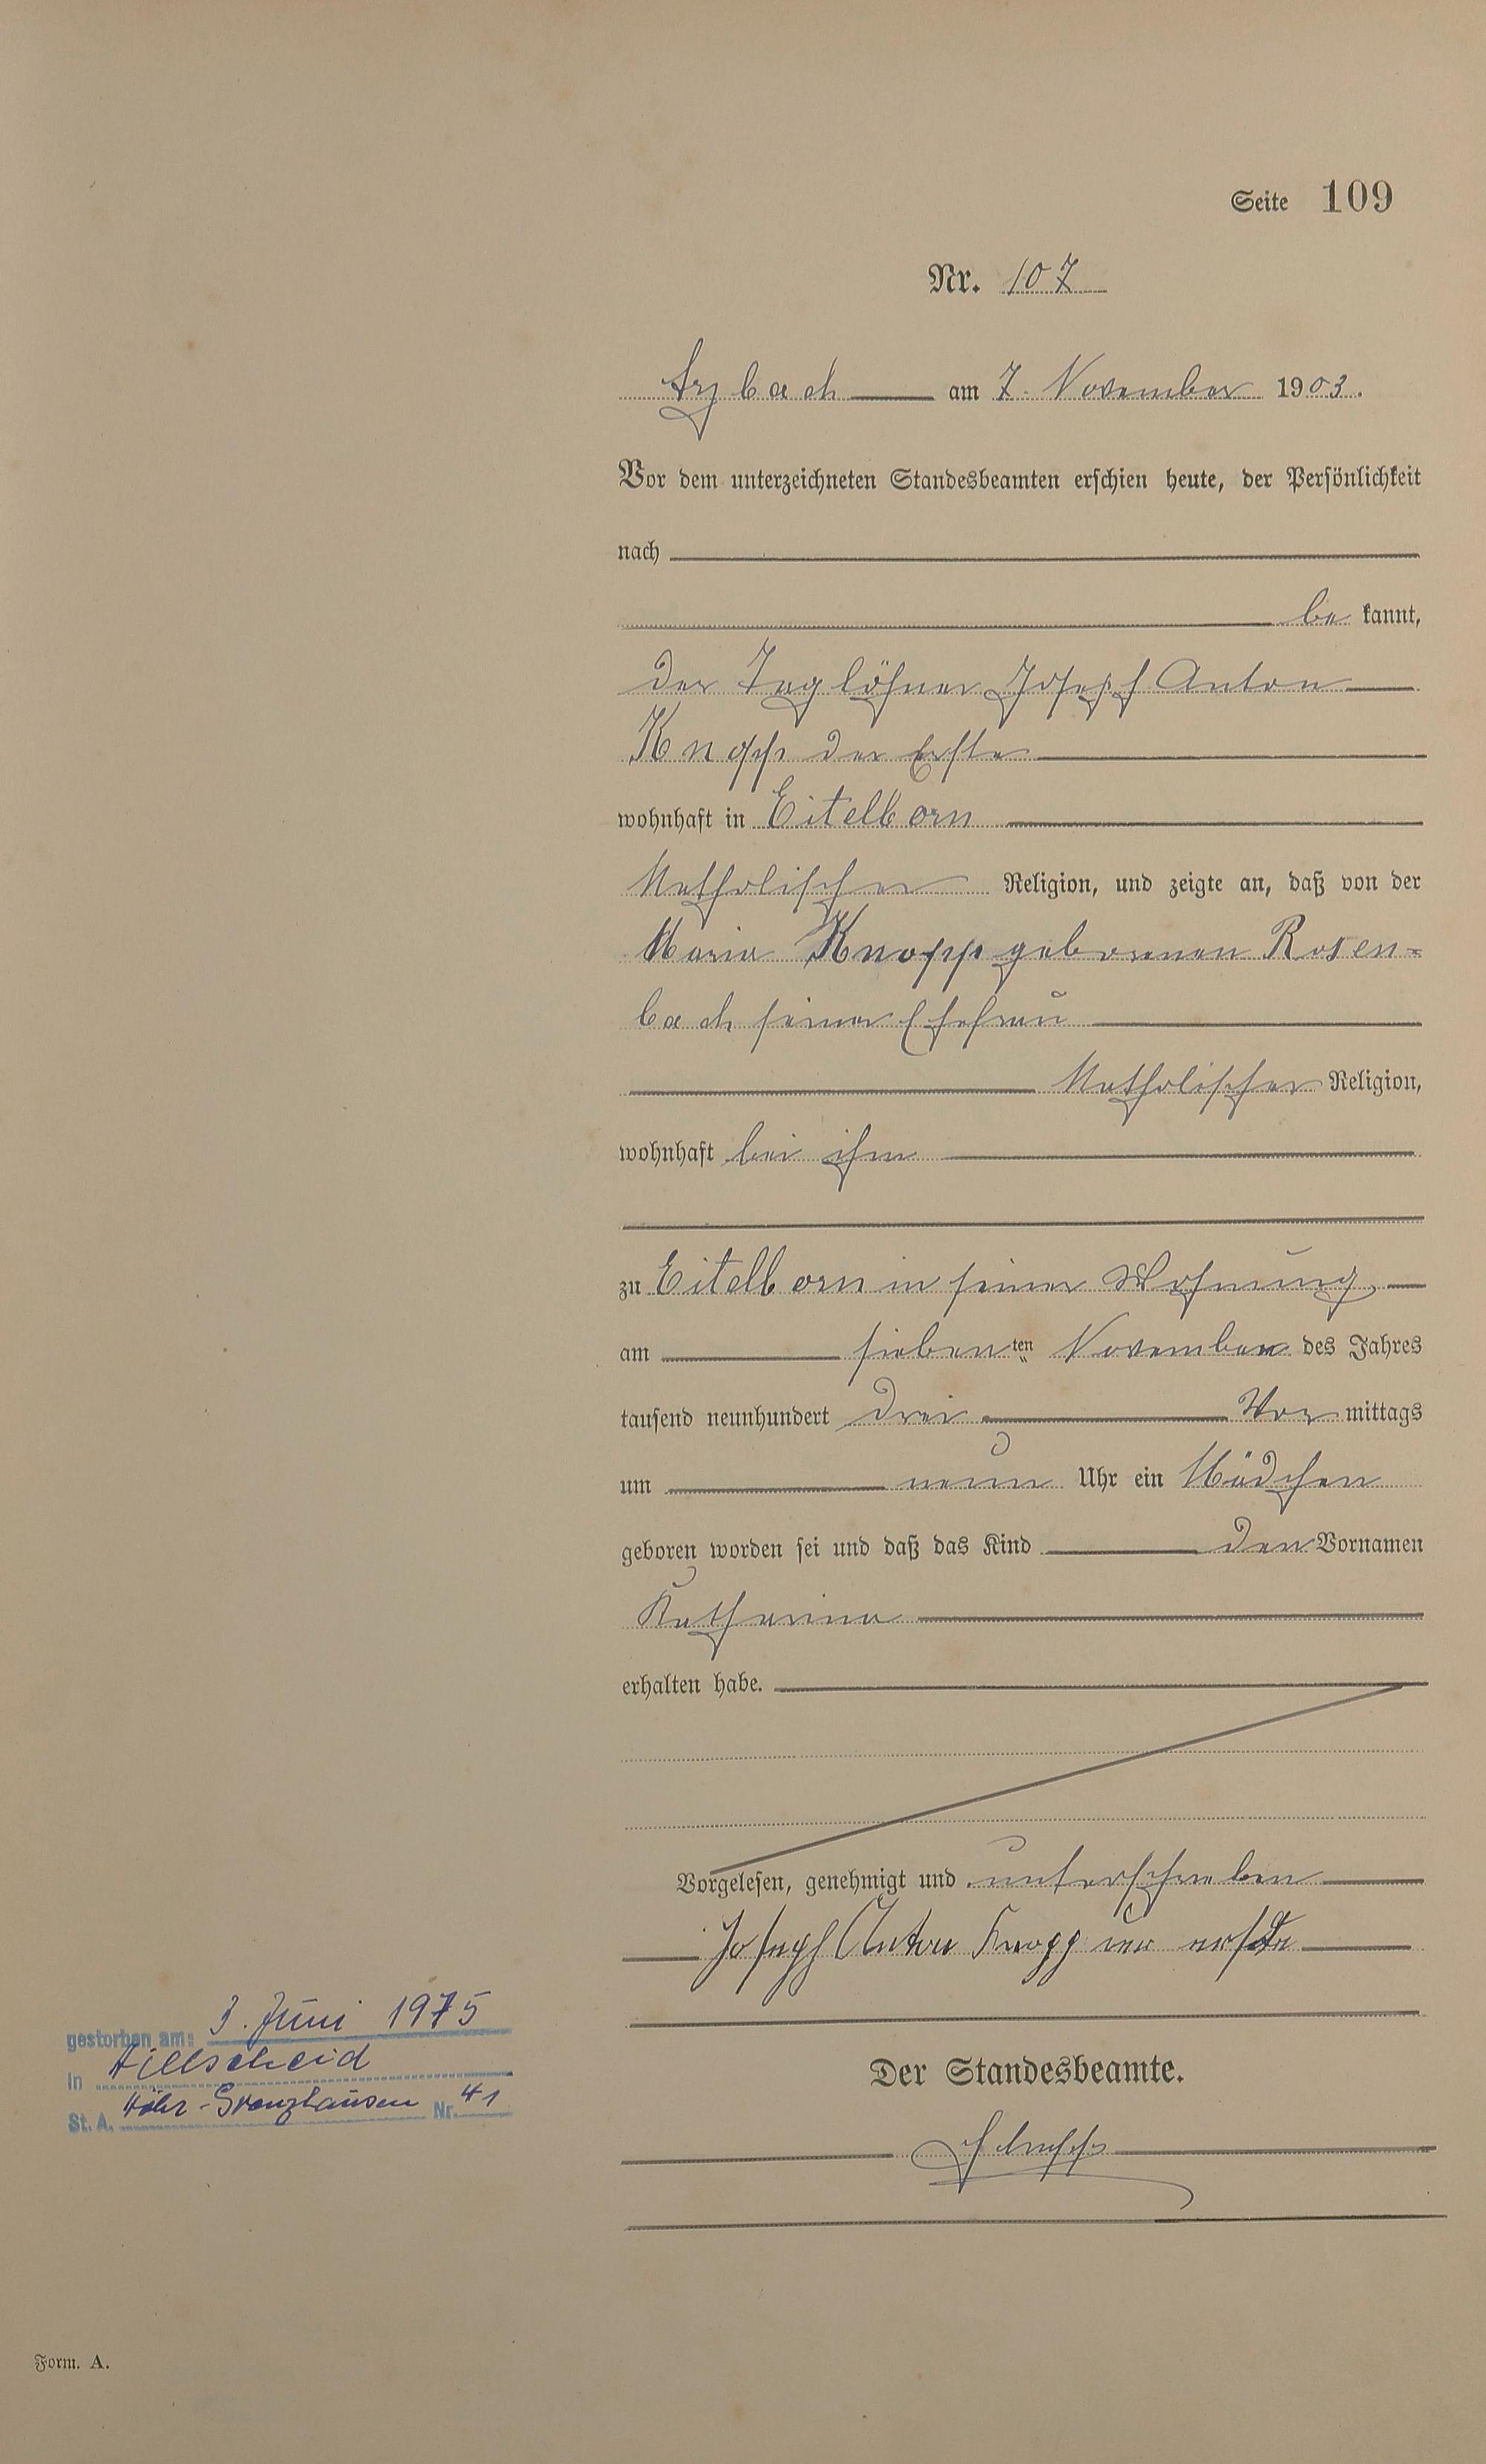 Seite 109
Nr. 107
Arzbach am 7. November 1903.
Vor dem unterzeichneten Standesbeamten erschien heute, der Persönlichkeit
nach
be kannt,
der Taglöhner Joseph Anton
Knopp der Erste
wohnhaft in Eitelborn
Katholischer Religion, und zeigte an, daß von der
Maria Knopp geborenen Rosen-
bach seiner Ehefrau
Katholischer Religion,
wohnhaft bei ihm
zu Eitelborn in seiner Wohnung
am siebenten November des Jahres
tausend neunhundert drei Vor mittags
um neun Uhr ein Mädchen
geboren worden sei und daß das Kind den Vornamen
Katharina
erhalten habe.
Vorgelesen, genehmigt und unterschrieben
Joseph Anton Knopp der erste
Der Standesbeamte.
gestorben am: 3. Juni 1975
in Hillscheid
St. A. Höhr-Grenzhausen Nr. 41
Form. A.